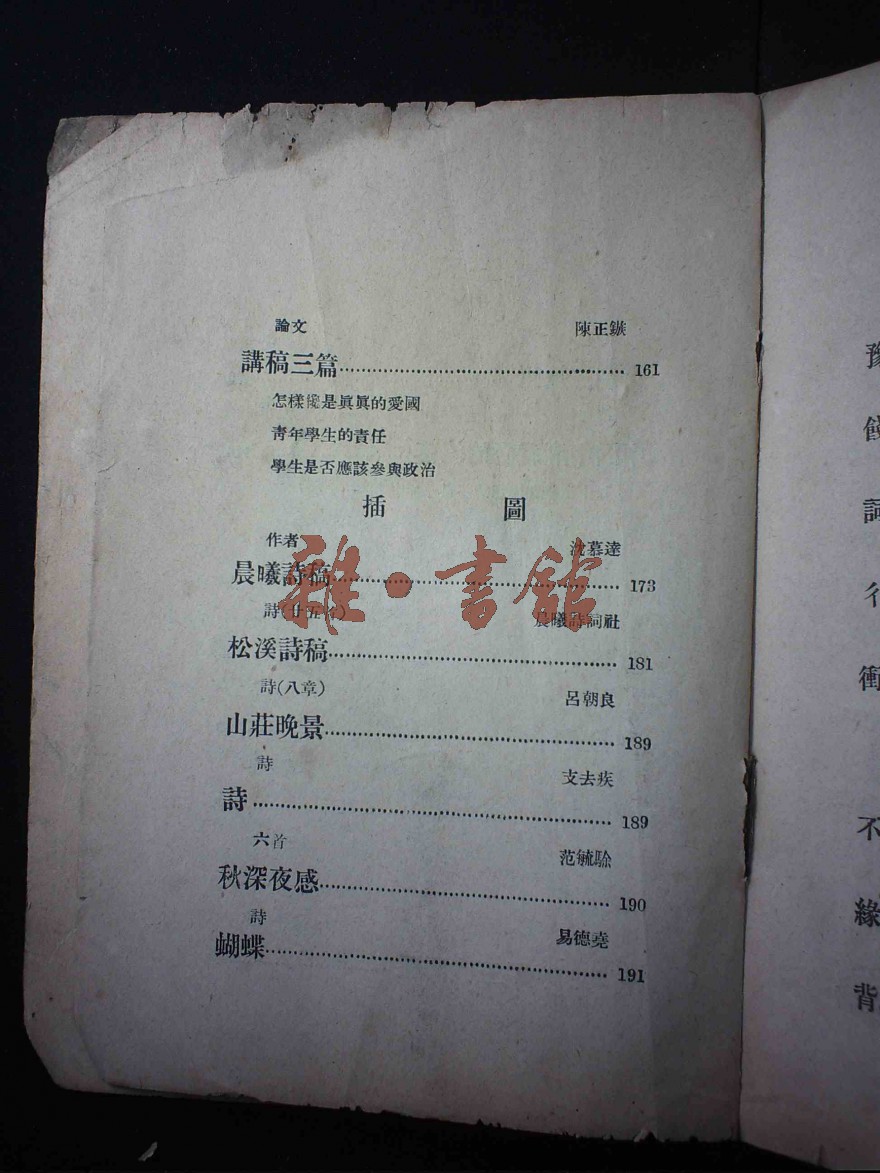 論文 陳正鏃
講稿三篇 161
怎樣纔是眞眞的愛國
靑年學生的責任
學生是否應該參與政治
插 圖
作者 沈慕達
晨曦詩稿 173
詩(廿五首) 晨曦詩詞社
松溪詩稿 181
詩(八章) 呂朝良
山莊晚景 189
詩 支去疾
詩 189
六首 范毓騐
秋深夜感 190
詩 易德堯
蝴蝶 191
雜·書館
豫
詞
行
衝
不
緣
背